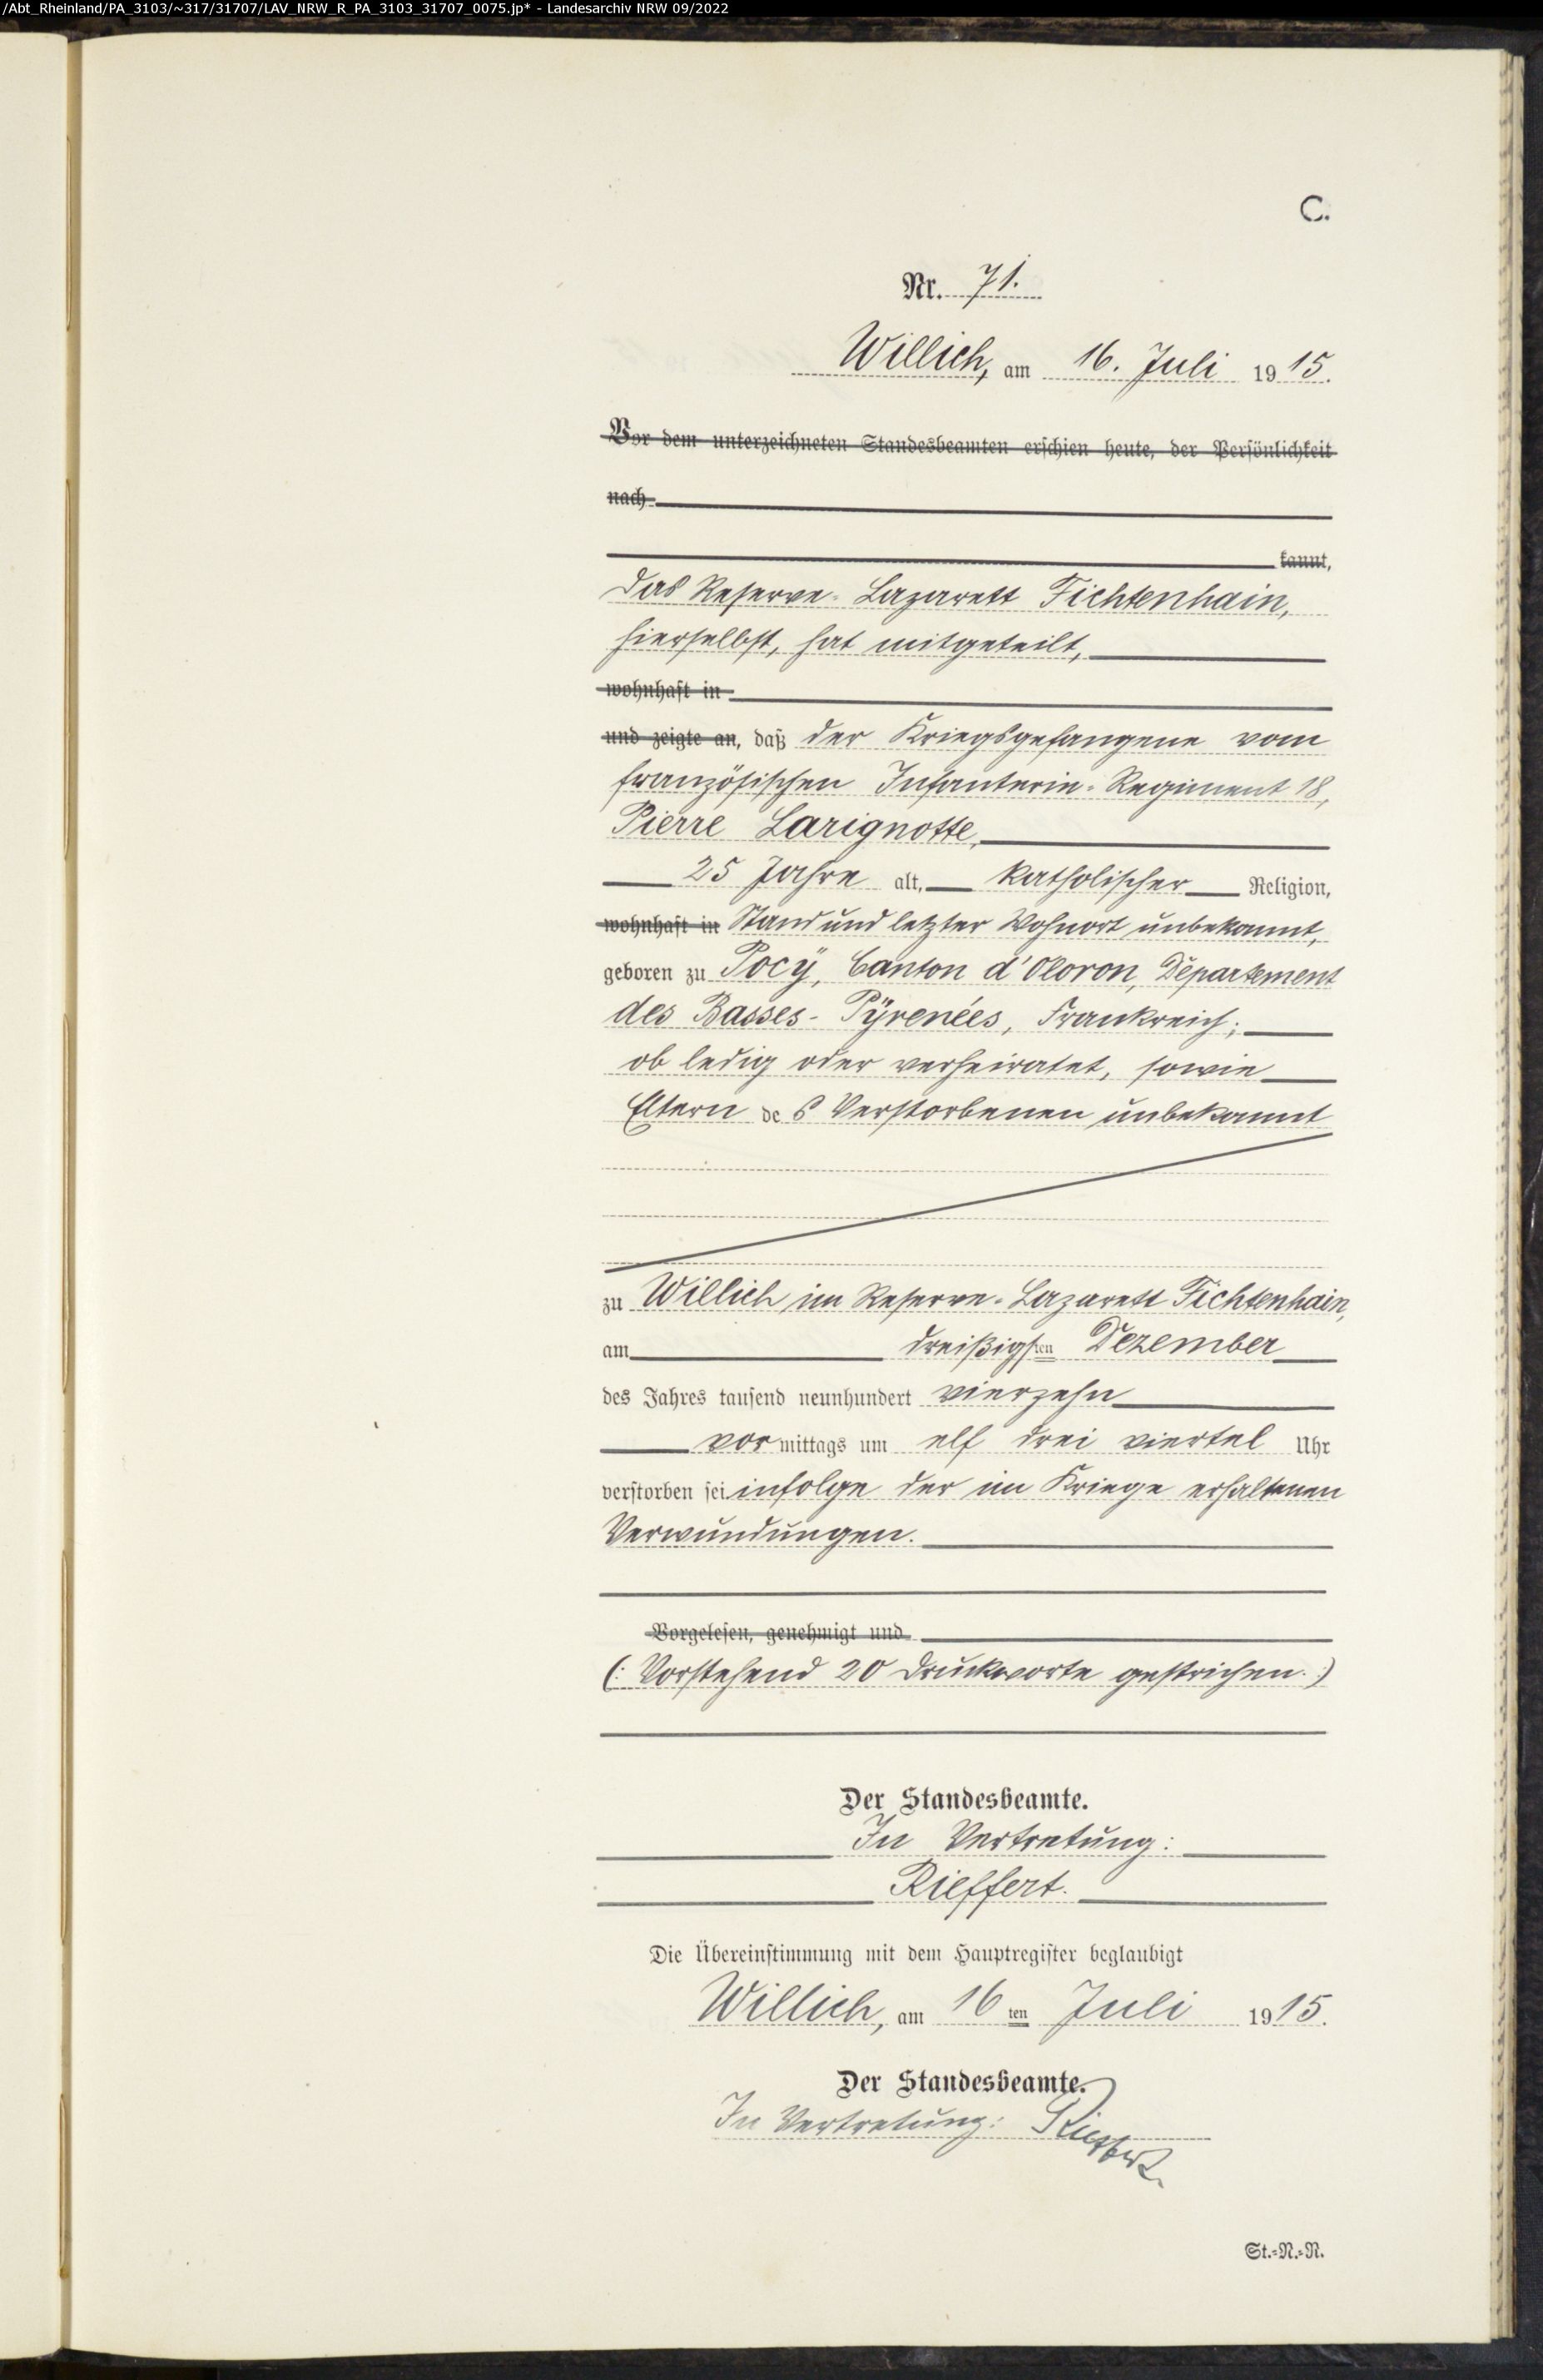 /Abt_Rheinland/PA_3103/~317/31707/LAV_NRW_R_PA_3103_31707_0075.jp* - Landesarchiv NRW 09/2022
C.
Nr. 71.
Willich, am 16. Juli 1915.
Vor dem unterzeichneten Standesbeamten erschien heute, der Persönlichkeit
nach
kannt,
Das Reserve-Lazarett Fichtenhain,
hierselbst, hat mitgeteilt,
wohnhaft in
und zeigte an, daß der Kriegsgefangene vom
französischen Infanterie-Regiment 18,
Pierre Larignotte,
25 Jahre alt, katholischer Religion,
wohnhaft in Stand und letzter Wohnort unbekannt,
geboren zu Pocÿ, Canton d'Oloron, Département
des Basses-Pÿrenées, Frankreich;
ob ledig oder verheiratet, sowie
Eltern des Verstorbenen unbekannt
zu Willich im Reserve-Lazarett Fichtenhain,
am dreißigsten Dezember
des Jahres tausend neunhundert vierzehn
vormittags um elf drei viertel Uhr
verstorben sei infolge der im Kriege erhaltenen
Verwundungen.
Vorgelesen, genehmigt und
(: Vorstehend 20 Druckworte gestrichen. :)
Der Standesbeamte.
In Vertretung:
Rieffert.
Die Übereinstimmung mit dem Hauptregister beglaubigt
Willich, am 16ten Juli 1915.
Der Standesbeamte.
In Vertretung: Rieffert.
St.=R.=R.